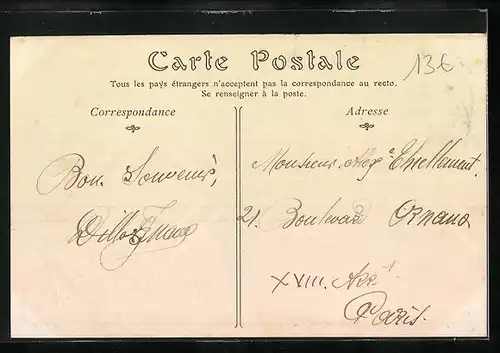 Carte Postale
13€
Tous les pays étrangers n'acceptent pas la correspondance au recto.
Se renseigner à la poste.
Correspondance
Adresse
Bon Souvenir,
Monsieur
21. Boulevard Ornano
XVIII. Arrt
Paris.